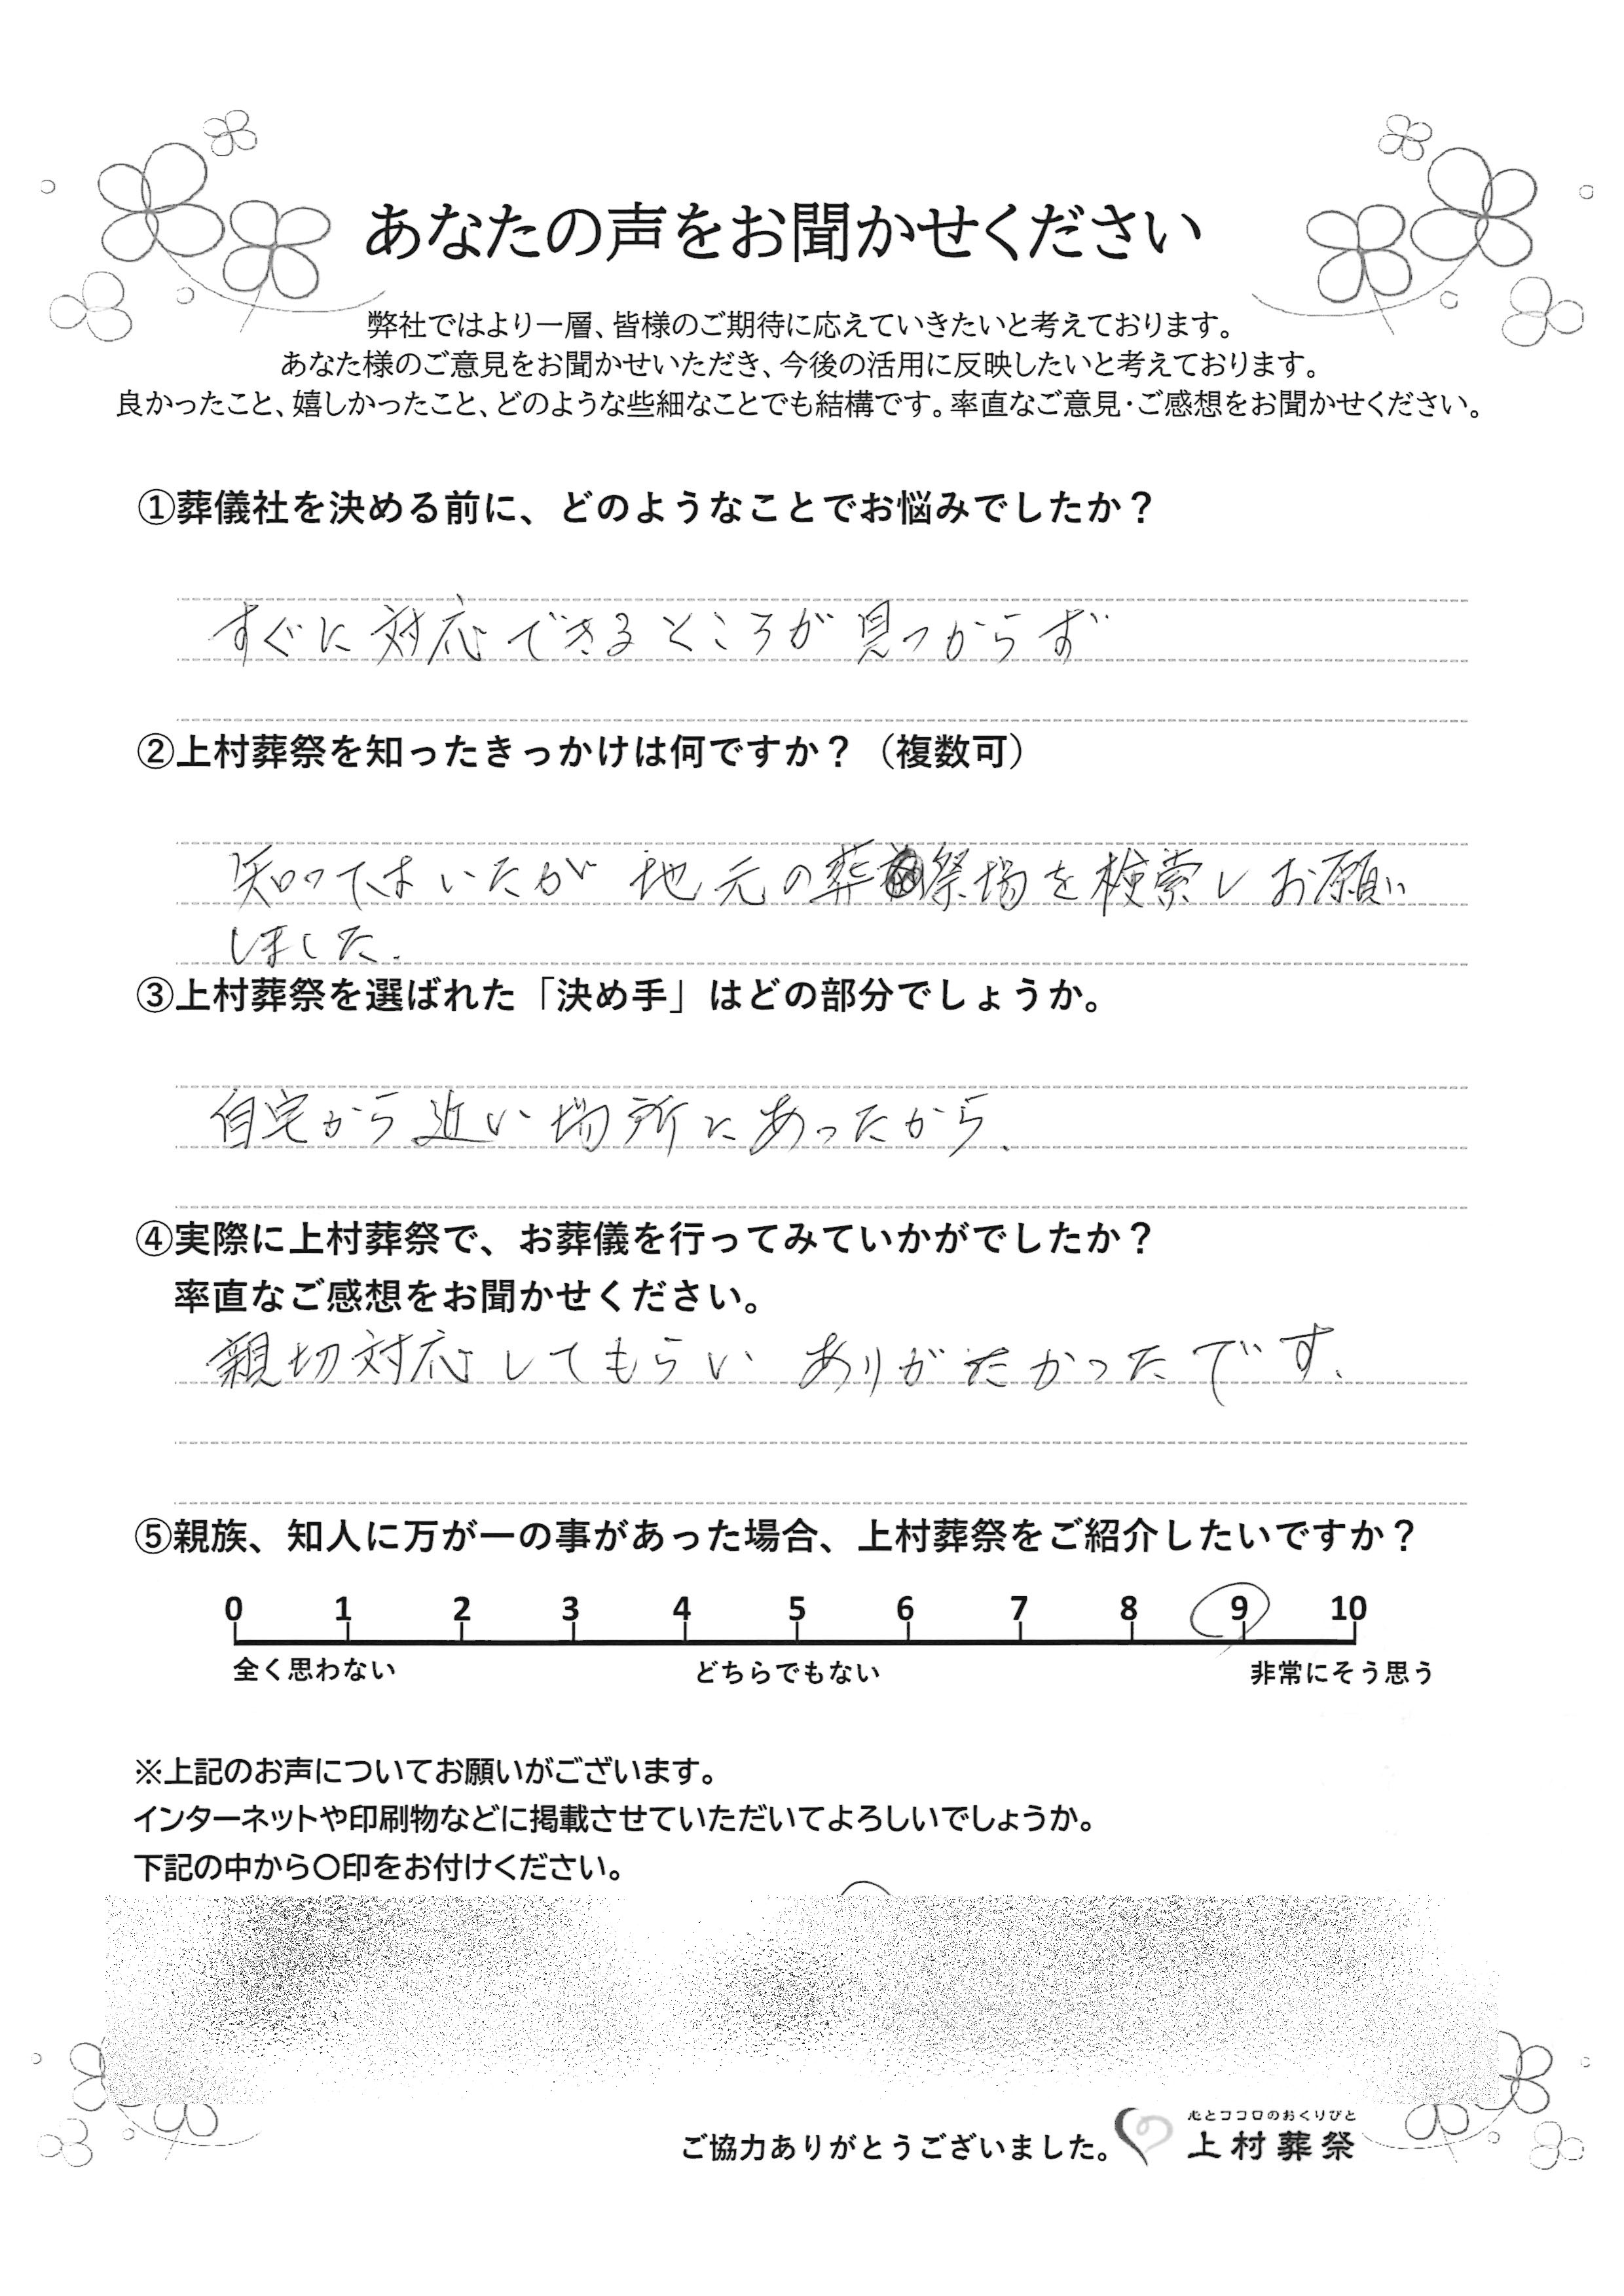 あなたの声をお聞かせください
弊社ではより一層、皆様のご期待に応えていきたいと考えております。
あなた様のご意見をお聞かせいただき、今後の活用に反映したいと考えております。
良かったこと、嬉しかったこと、どのような些細なことでも結構です。率直なご意見・ご感想をお聞かせください。
①葬儀社を決める前に、どのようなことでお悩みでしたか？
すぐに対応できるところが見つからず
②上村葬祭を知ったきっかけは何ですか？（複数可）
知ってはいたが 地元の葬祭場を検索しお願い
しました.
③上村葬祭を選ばれた「決め手」はどの部分でしょうか。
自宅から近い場所にあったから.
④実際に上村葬祭で、お葬儀を行ってみていかがでしたか？
率直なご感想をお聞かせください。
親切対応してもらい ありがたかったです.
⑤親族、知人に万が一の事があった場合、上村葬祭をご紹介したいですか？
0 1 2 3 4 5 6 7 8 9 10
全く思わない どちらでもない 非常にそう思う
※上記のお声についてお願いがございます。
インターネットや印刷物などに掲載させていただいてよろしいでしょうか。
下記の中から〇印をお付けください。
心とココロのおくりびと
ご協力ありがとうございました。 上村葬祭